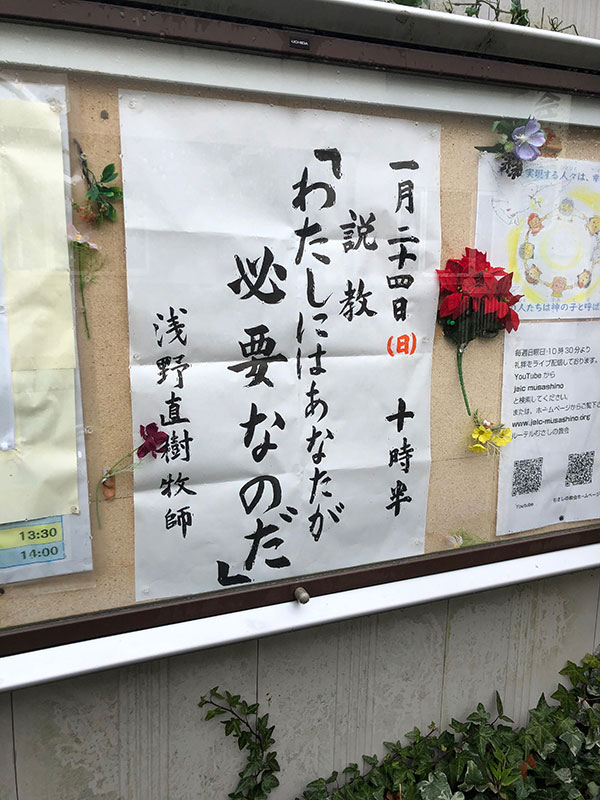 UCHIDA
一月二十四日(日) 十時半
説教
「わたしにはあなたが
必要なのだ」
浅野直樹牧師
実現する人々は、幸
人たちは神の子と呼ば
毎週日曜日・10時30分より
礼拝をライブ配信しております。
YouTubeから
jelc musashino
と検索してください。
または、ホームページからご覧下さ
www.jelc-musashino.org
ルーテルむさしの教会
Youtube
むさしの教会ホームページ
13:30
14:00